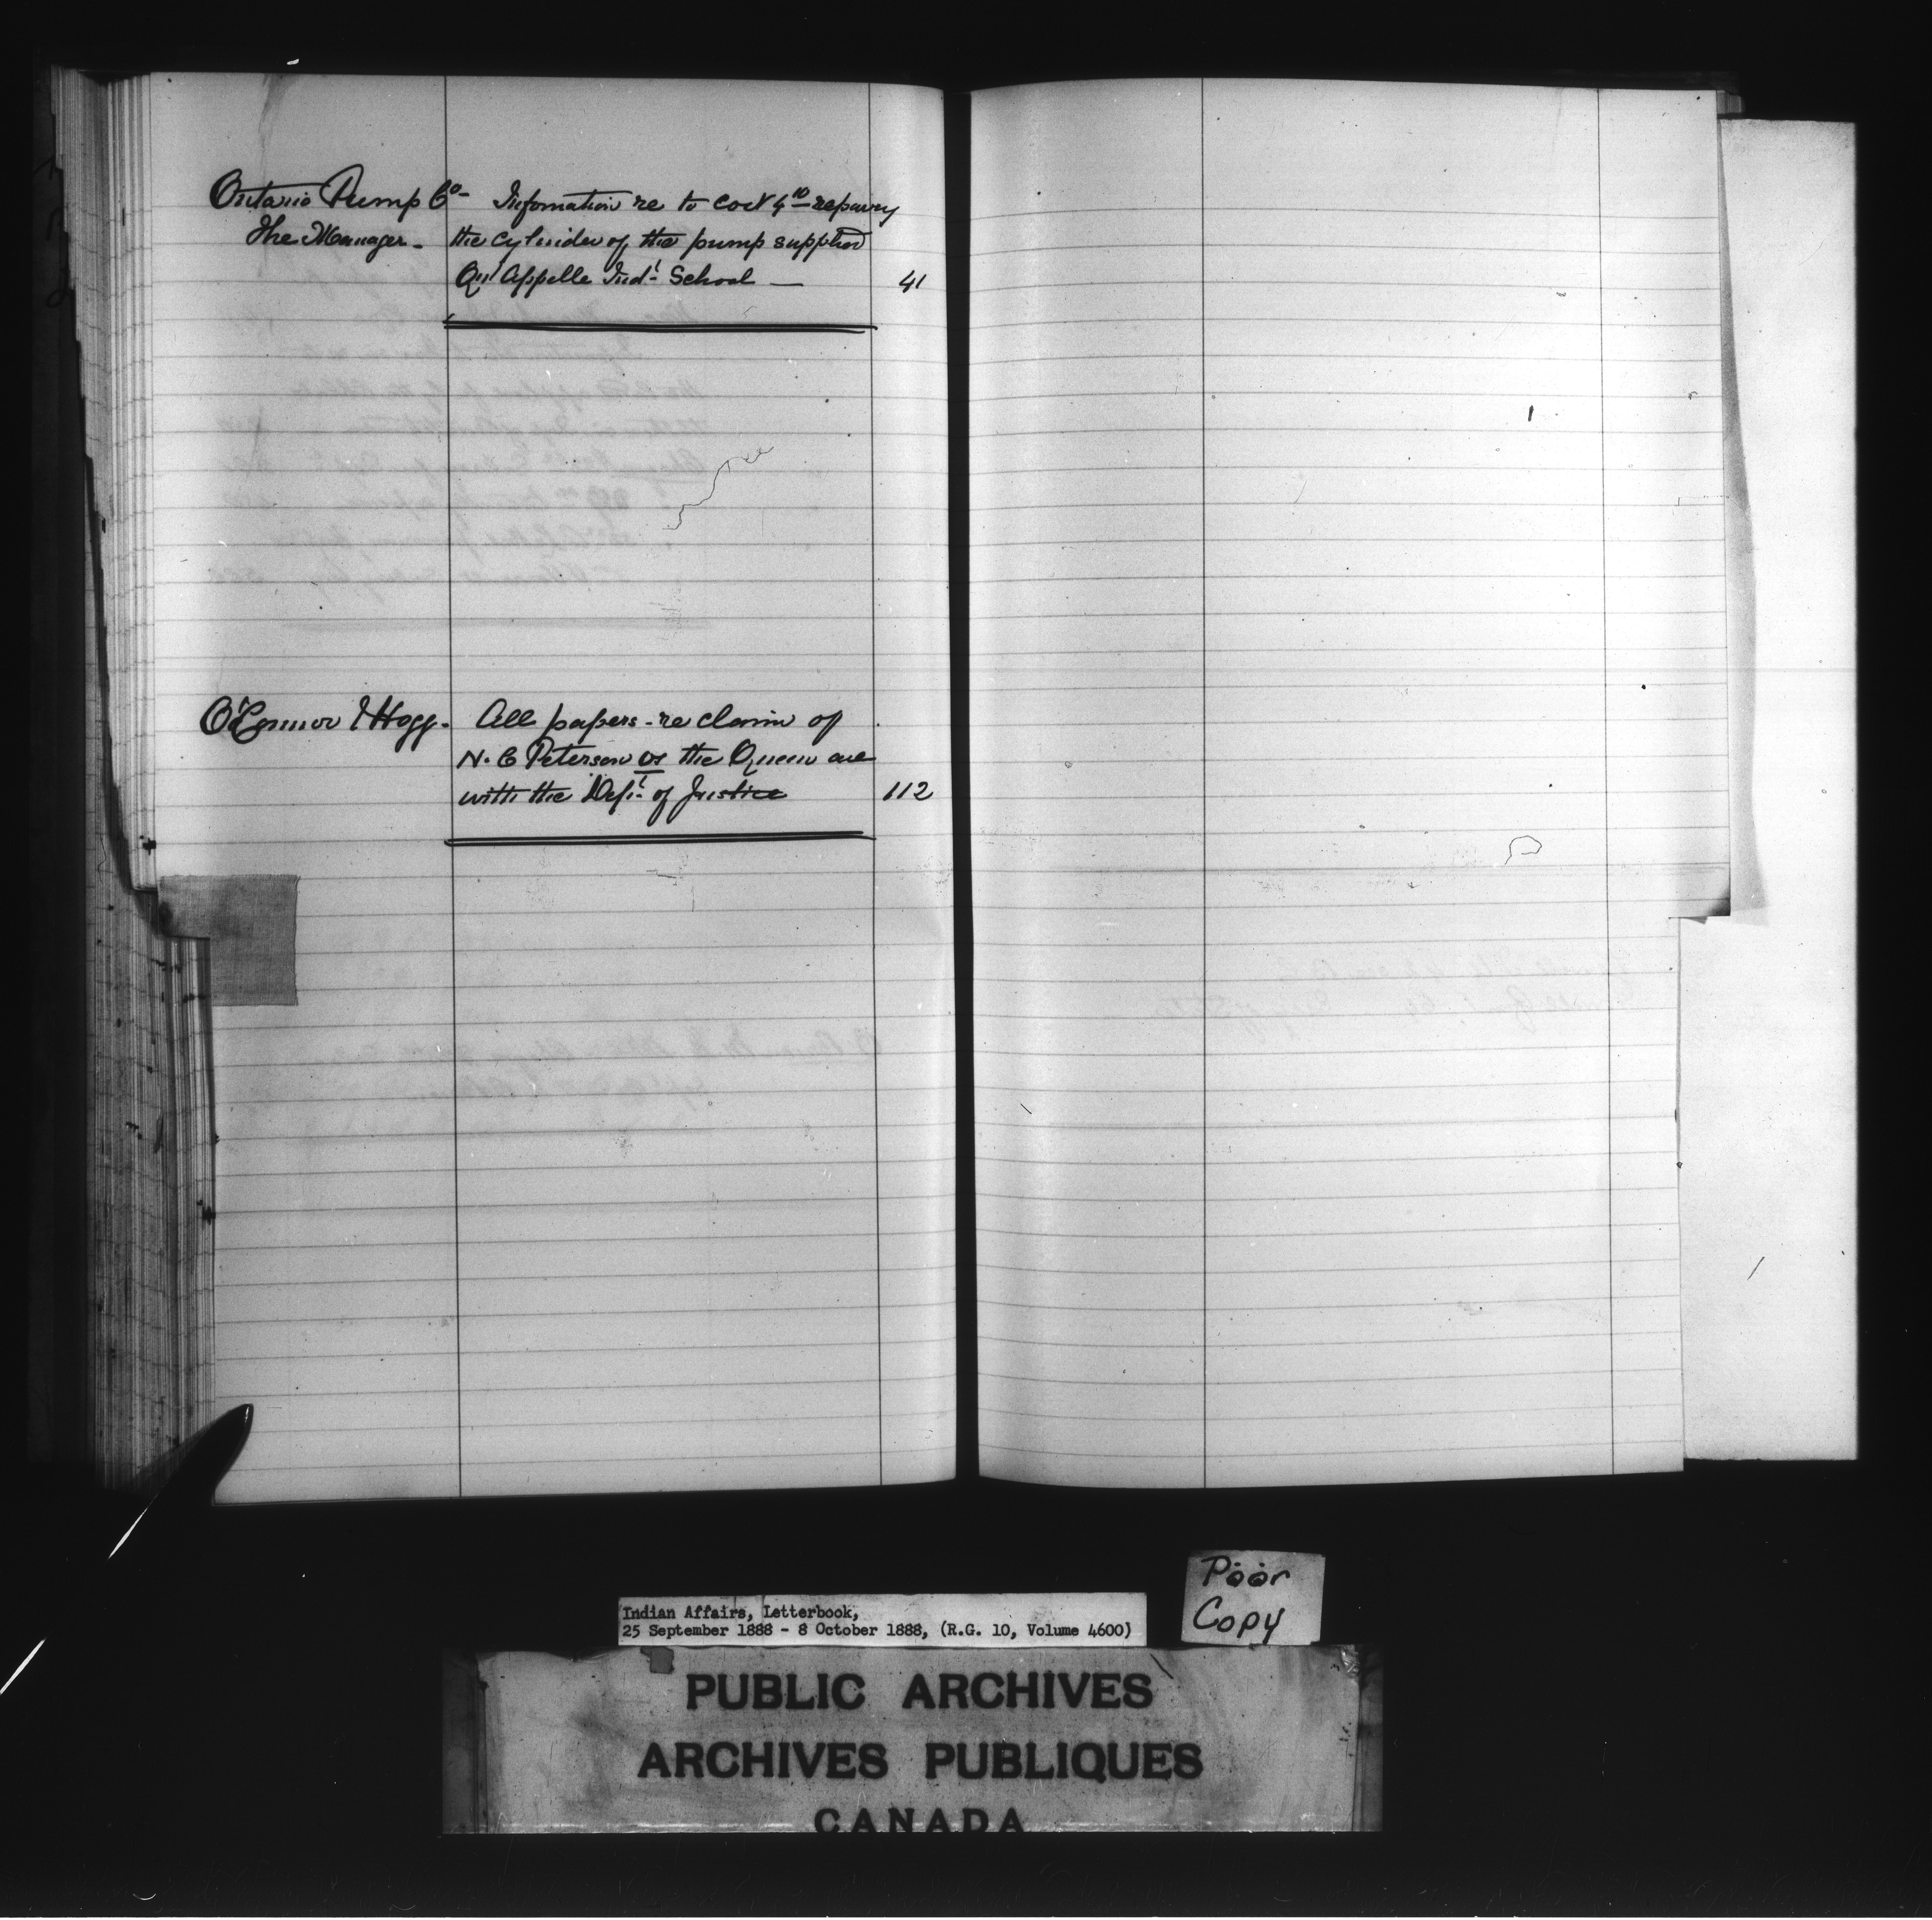 Ontario Pump Co- Infomation re to cost of repairing
The Manager - the cylinder of the pump supplied
Qu'Appelle Indl School — 41
O'Connor & Hogg - All papers - re claim of
N. C Peterson vs the Queen are
with the Dept of Justice 112
Poor
Copy
Indian Affairs, Letterbook,
25 September 1888 - 8 October 1888, (R.G. 10, Volume 4600)
PUBLIC ARCHIVES
ARCHIVES PUBLIQUES
CANADA